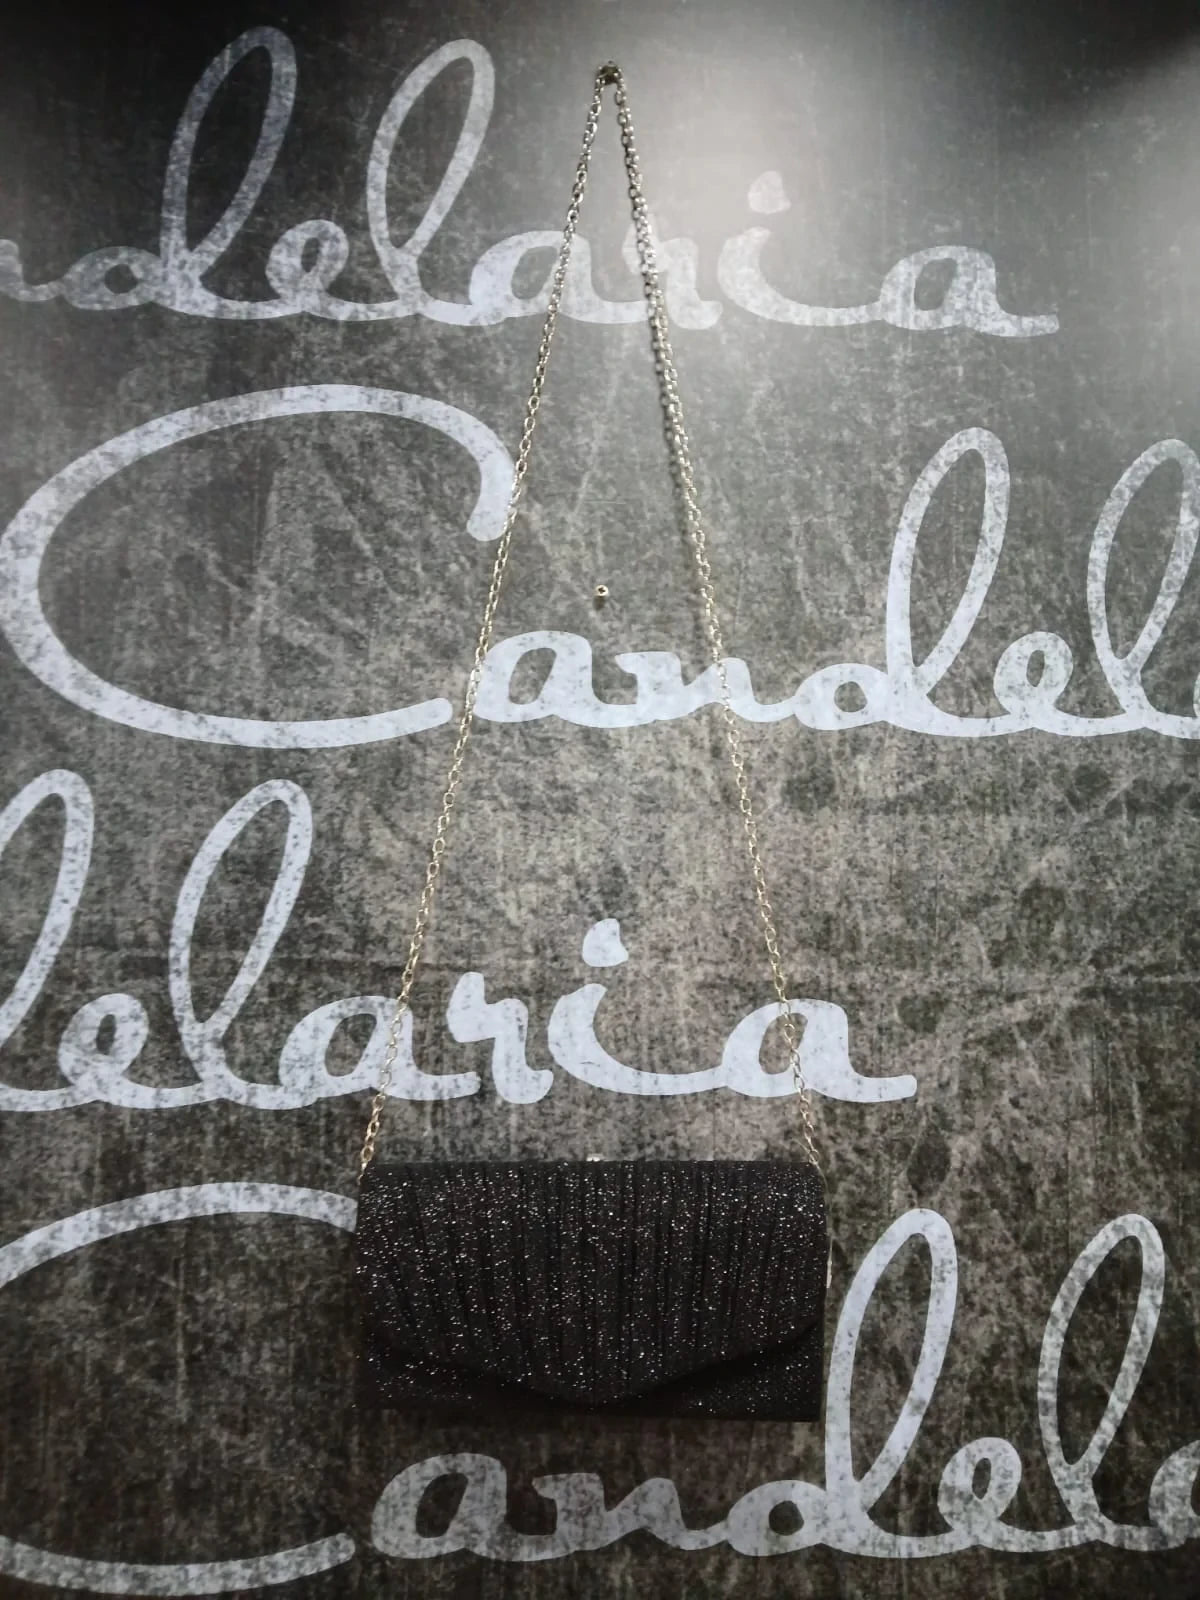 ndelaria
Candel
delaria
Candela